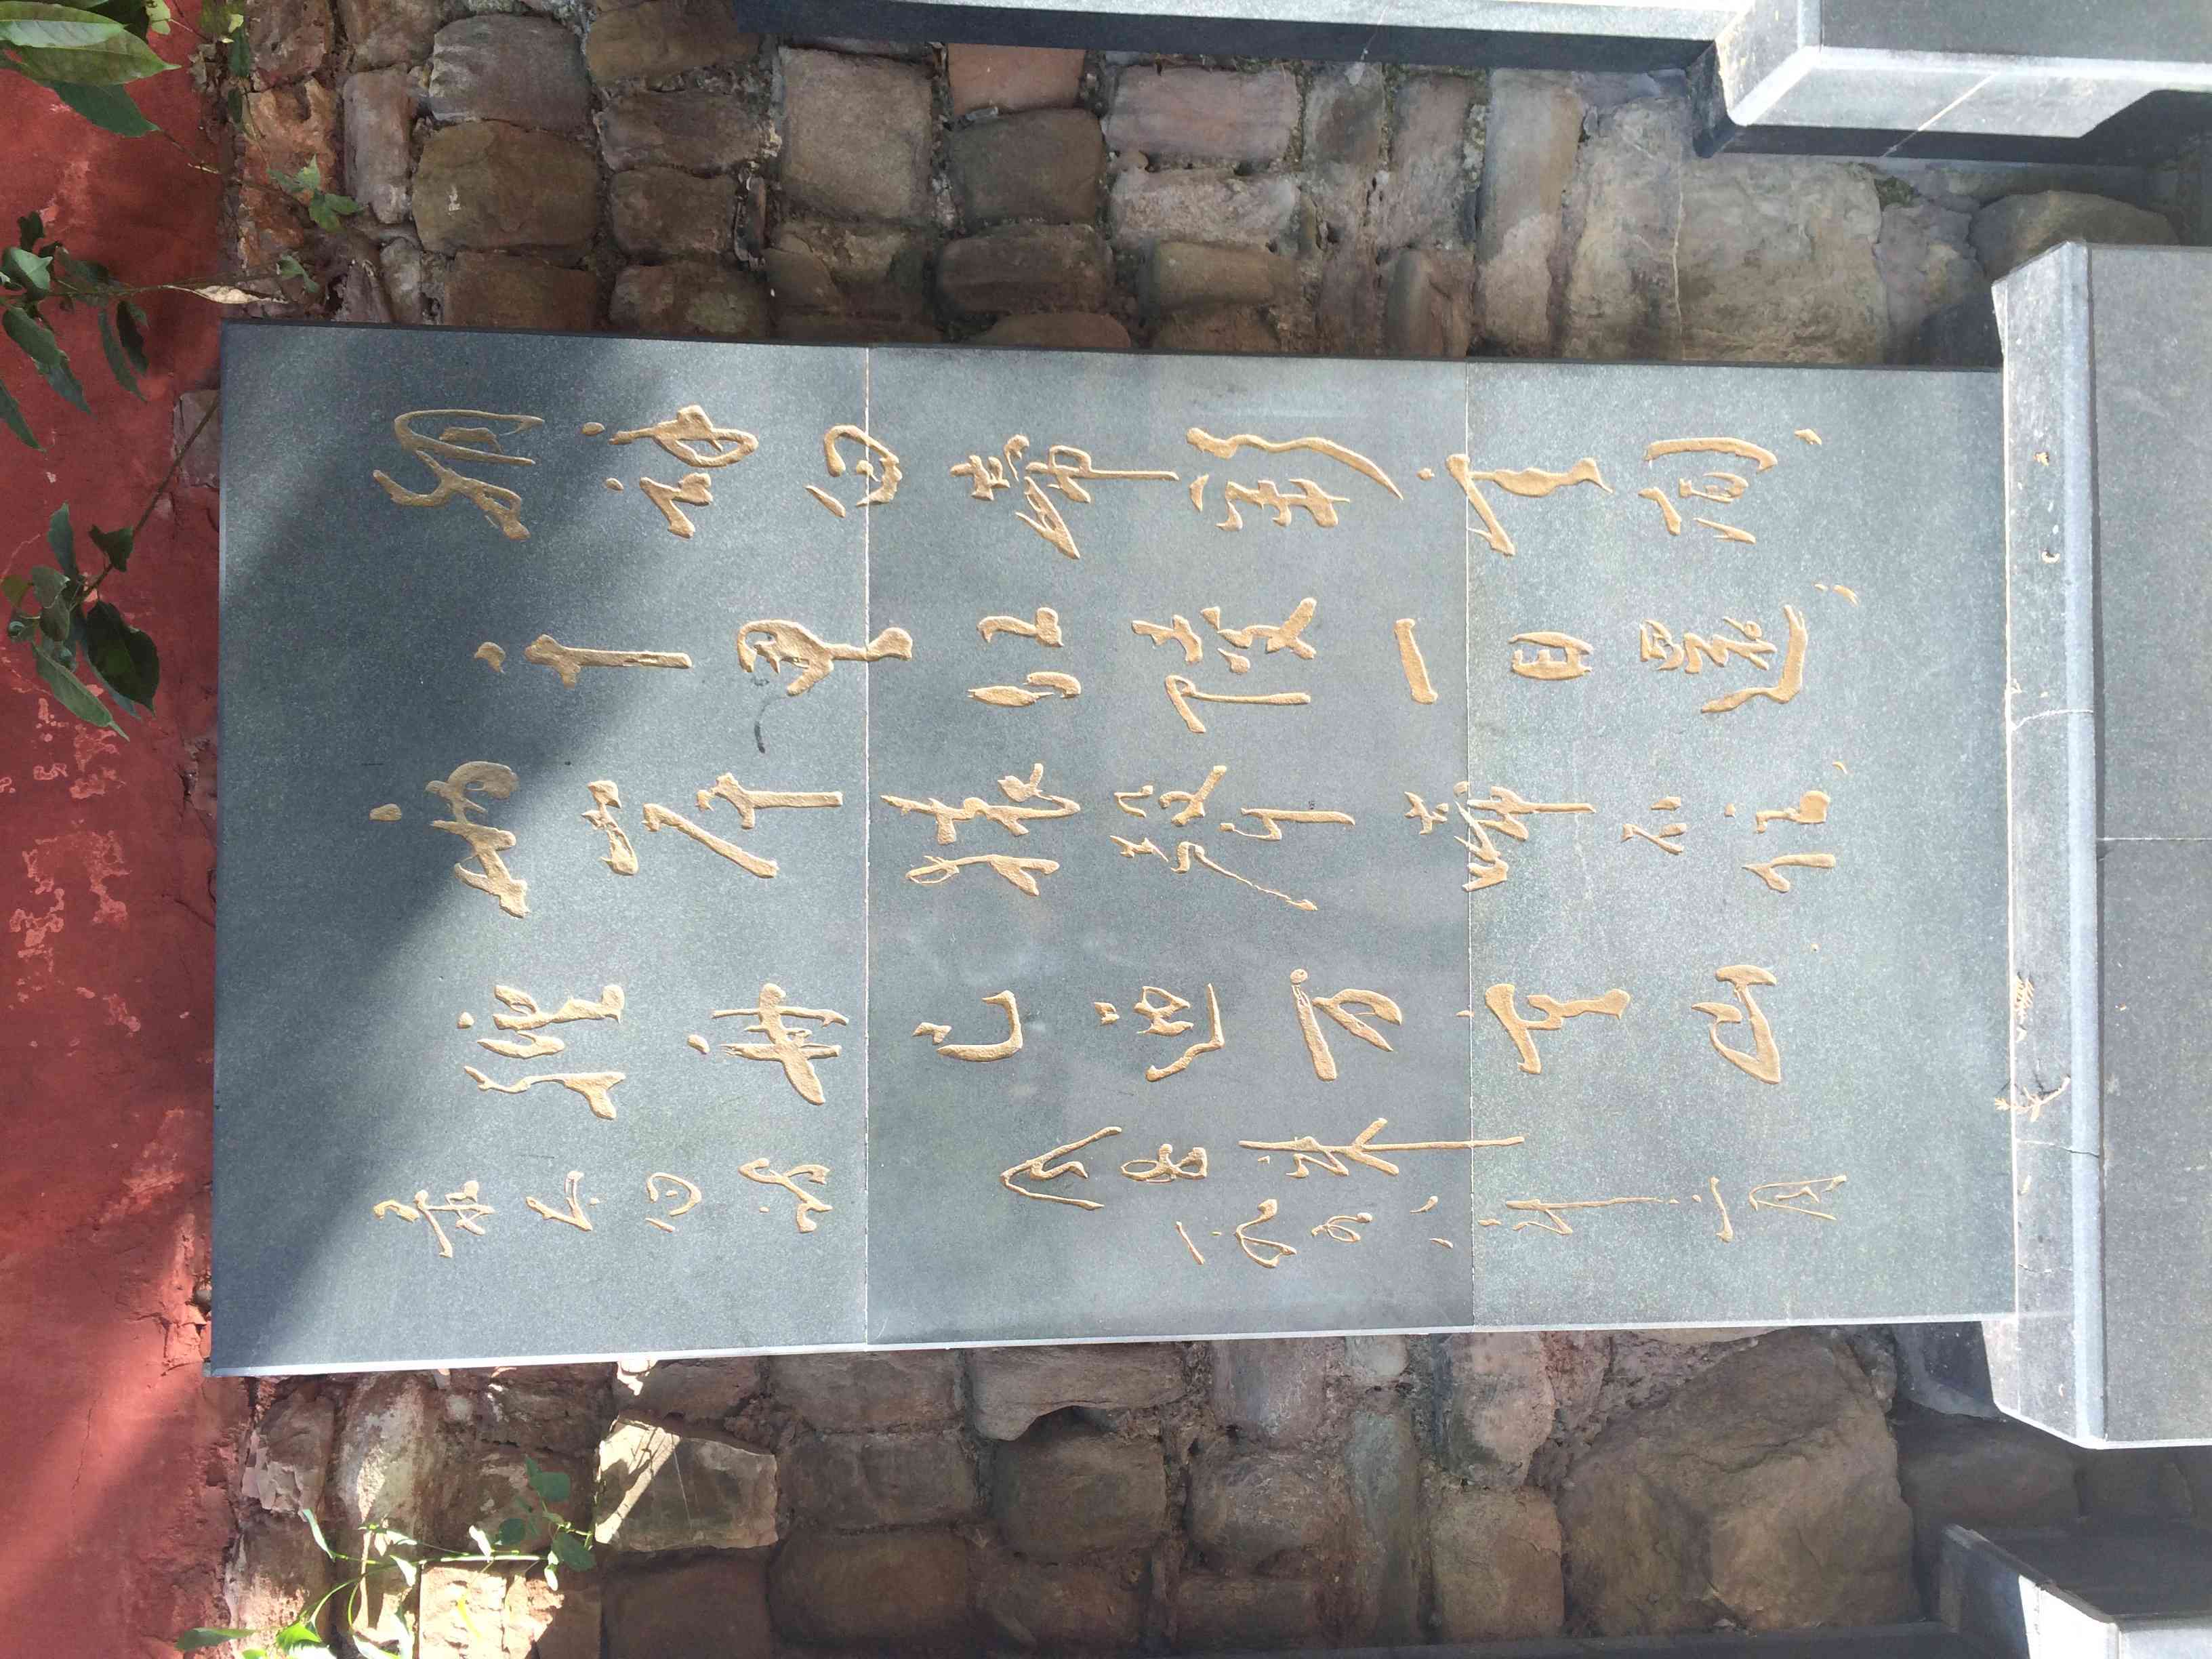 朝辞白帝彩雲间,
千里江陵一日還;
两岸猿聲啼不住,
輕舟已过万重山.
录太白诗
周恩来
一九五八年二月